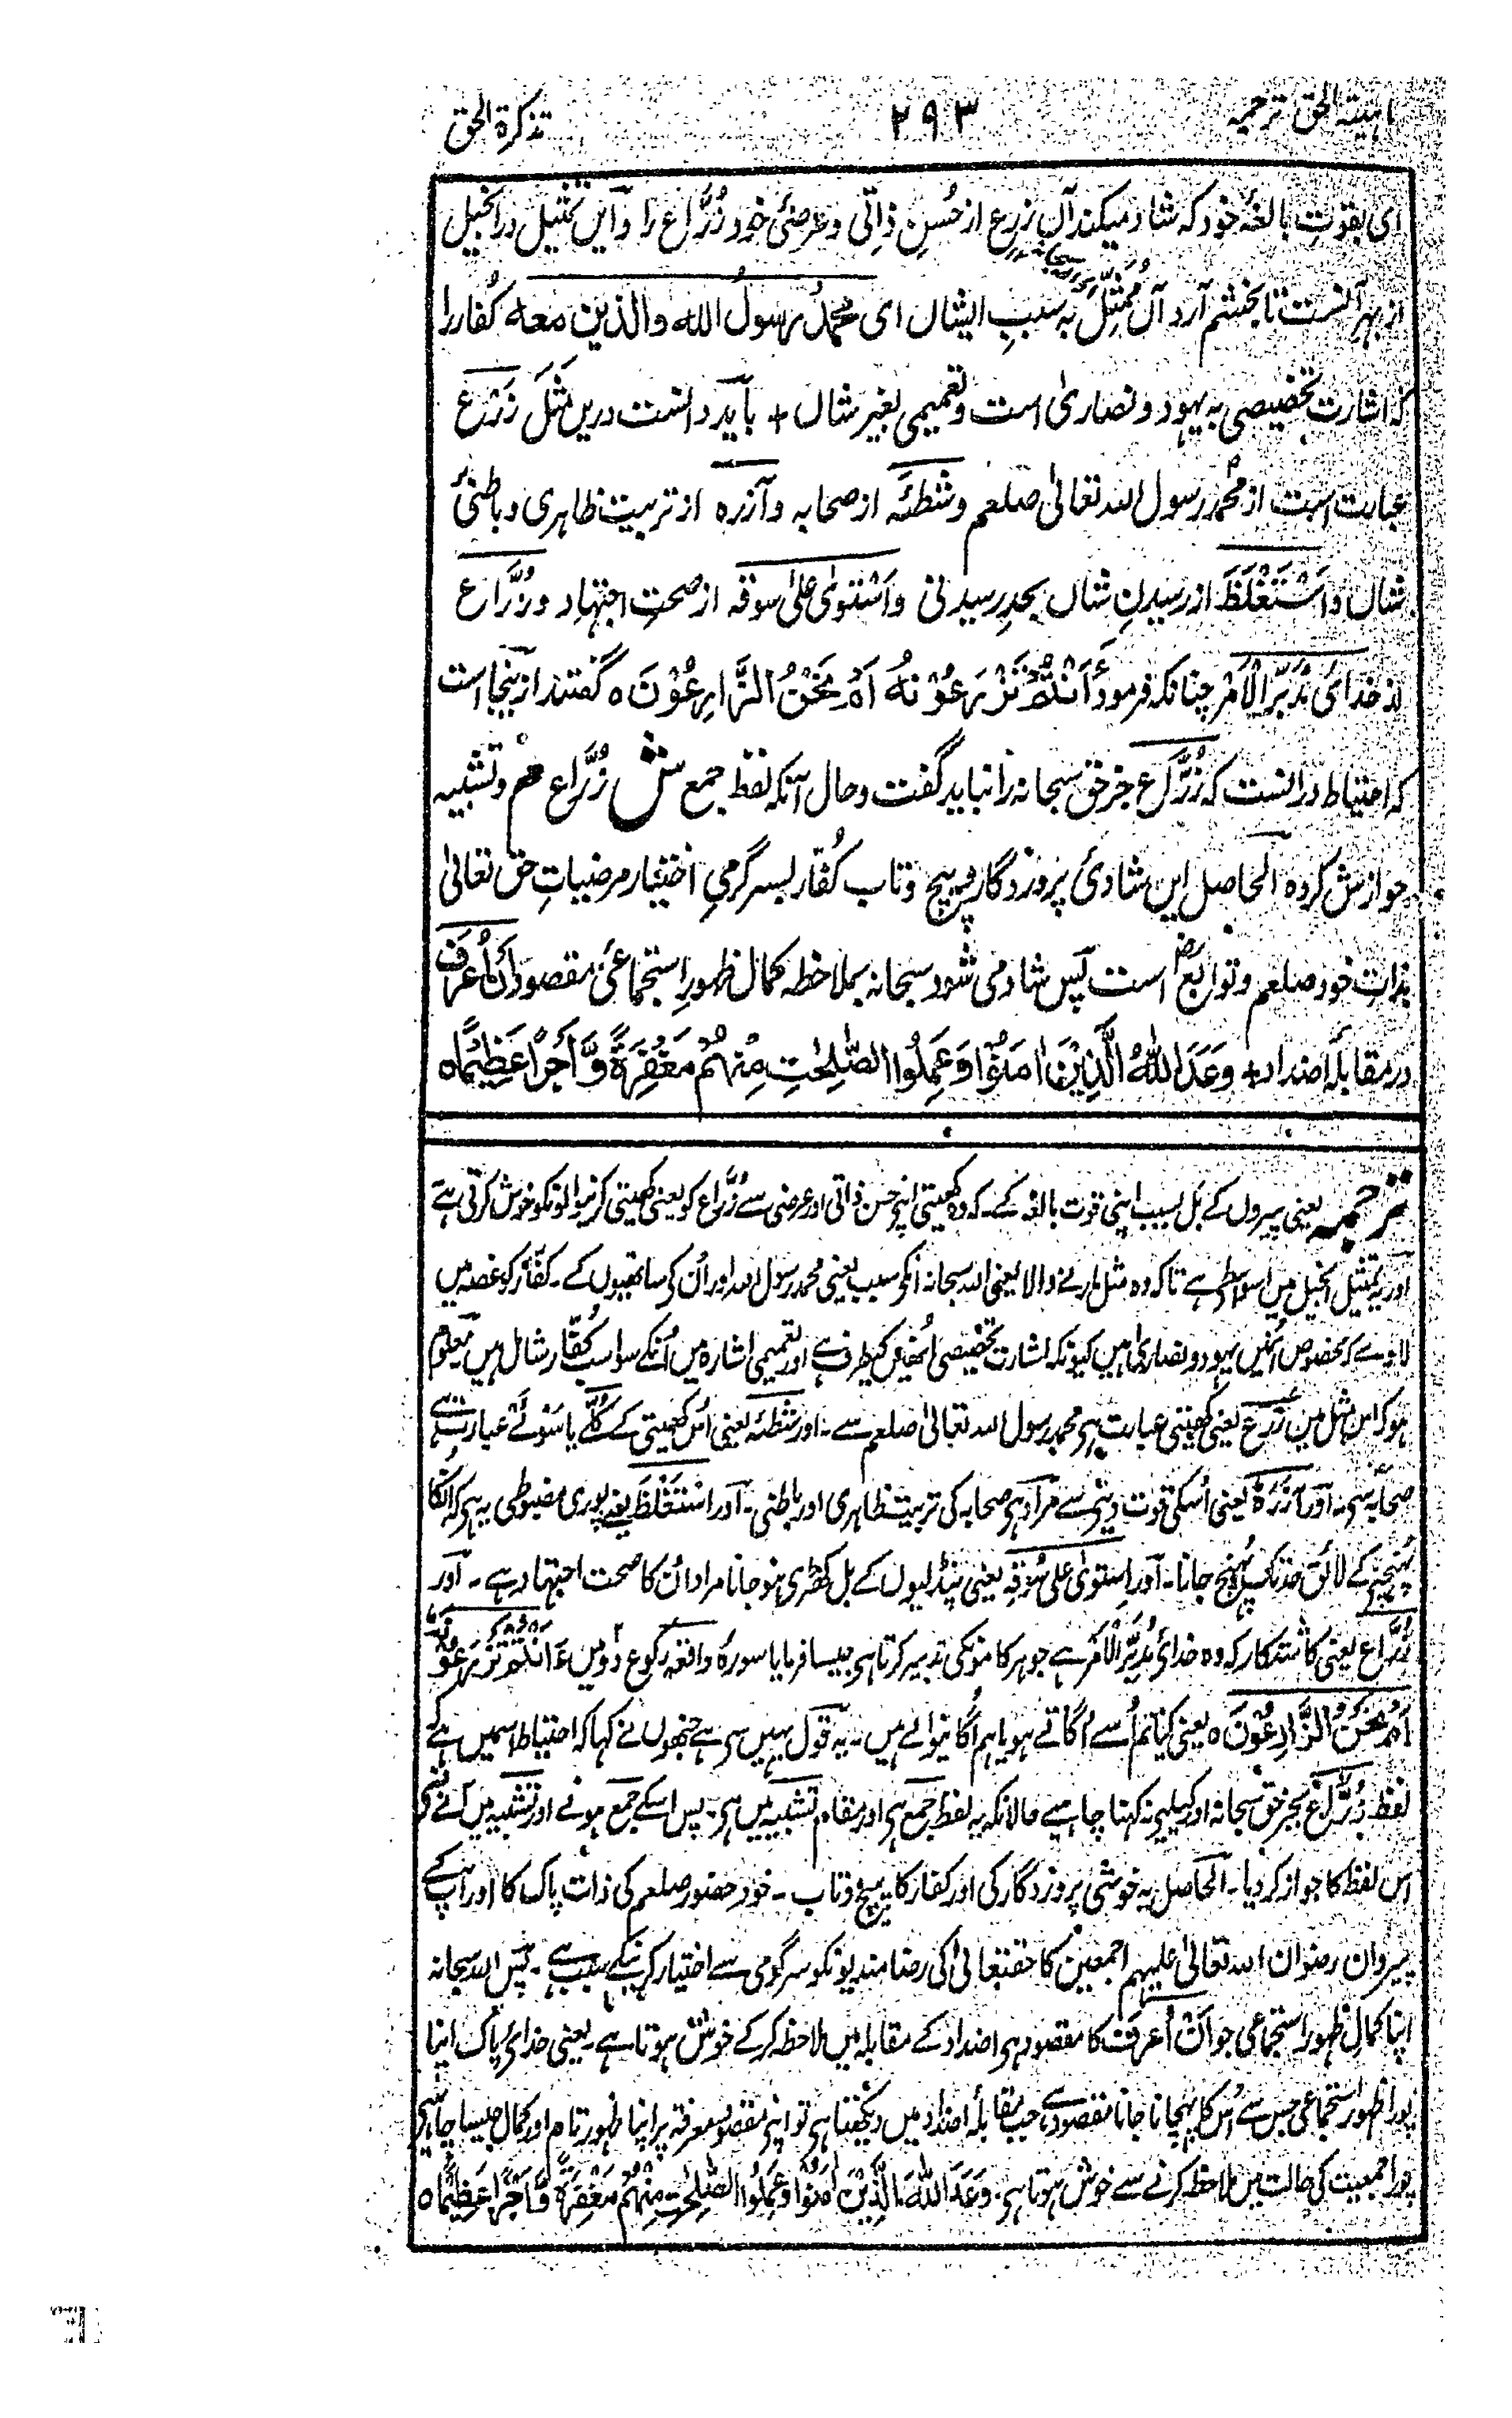 اہیتہ الحق ترجمہ ۲۹۳ تذکرۃ الحق
ای بقوتِ بالغۂ خود که شاد میکند آں زرع از حُسنِ ذاتی و عرضیٔ خود زُرَّاع را وآیں تمثیل در انجیل
سبحانه
از بہر آنست تا بخشم آرد آں مُمثِّل به سببِ ایشاں ای محمدٌ رسولُ الله والذین معه کُفار را
که اشارت تخصیصی به یہود و نصاریٰ است و تعمیمی بغیر شاں + باید دانست دریں مَثَل زَرْع
عبارت است از محمد رسول الله تعالیٰ صلعم و شطئَه از صحابه وآزره از تربیت ظاہری و باطنیٔ
شاں واسْتَغْلَظَ از رسیدنِ شاں بحدِ رسیدنی واسْتَویٰ علیٰ سوقه از صحتِ اجتہاد و زُرَّاع
از خدائ مُدَبِّرُ الْاَمْر چنانکه فرمود ءَاَنْتُمْ تَزْرَعُوْنَهٗ اَمْ نَحْنُ الزَّارِعُوْنَ ہ گفتند ازینجا است
که احتیاط در آنست که زُرَّاع جز حق سبحانه را نباید گفت و حال آنکه لفظ جمع ش زُرَّاع ھم و تشبیه
جوازش کرده الحاصل ایں شادیٔ پروردگار و پیچ و تاب کُفّار بسر گرمیِ اختیار مرضیاتِ حق تعالیٰ
بذاتِ خود صلعم و توابع است پس شاد می شود سبحانه بملاحظه کمال ظہورِ استجماعیٔ مقصود اَنْ اُعْرَفَ
در مقابلۂ اضداد + وَعَدَ اللهُ الَّذِيْنَ اٰمَنُوْا وَعَمِلُوا الصّٰلِحٰتِ مِنْهُمْ مَغْفِرَةً وَّاَجْرًا عَظِيْمًا ہ
ترجمہ یعنی پیروں کے بَل بسبب اپنی قوت بالغہ کے۔ کہ وہ کھیتی اپنے حسن ذاتی اور عرضی سے زُرَّاع کو یعنی کھیتی کرنیوالونکو خوش کرتی ہے
اور یہ تمثیل انجیل میں اسواسطے ہے تاکہ وہ مثل مارنے والا یعنی اللہ سبحانہ انکے سبب یعنی محمد رسول اللہ اور اُن کے ساتھیوں کے۔ کفّار کو غصہ میں
لاوے کہ مخصوص انمیں یہود و نصاریٰ ہیں کیونکہ اشارت تخصیصی اُنھیں کیطرف ہے اور تعمیمی اشارہ میں اُنکے سوا سب کُفّار شامل ہیں معلوم
ہو کہ اس مثل میں زرع یعنی کھیتی عبارت ہے محمد رسول اللہ تعالیٰ صلعم سے۔ اور شطئَه یعنی اُس کھیتی کے کَلّے یا سوئے عبارت ہے
صحابہ سے۔ اور آزَرَهٗ یعنی اُسکی قوت دینے سے مراد ہے صحابہ کی تربیت ظاہری اور باطنی۔ اور استَغْلَظَ یعنے پوری مضبوطی یہ ہے کہ انکا
پُہنچنے کے لائق حد تک پُہنچ جانا۔ اور استویٰ علی سُوْقِه یعنی پنڈلیوں کے بل کھڑی ہو جانا مراد اُن کا صحت اجتہاد ہے۔ اور
زُرَّاع یعنی کاشتکار کہ وہ خدائ مُدَبِّرُ الْاَمْر ہے جو ہر کامونکی تدبیر کرتا ہے جیسا فرمایا سورۂ واقعہ رکوع دوٴ میں ءَاَنْتُمْ تَزْرَعُوْنَهٗ
اَمْ نَحْنُ الزَّارِعُوْنَ ہ یعنی کیا تم اُسے اُگاتے ہو یا ہم اُگانیوالے ہیں۔ یہ قول یہیں سے ہے جنھوں نے کہا کہ احتیاط اسمیں ہے کہ
لفظ زُرَّاع بجز حق سبحانہ اور کیلیے نہ کہنا چاہیے حالانکہ یہ لفظ جمع ہے اور مقام تشبیہ میں ہے۔ پس اسکے جمع ہونے اور تشبیہ میں آنے نے
اس لفظ کا جواز کر دیا۔ الحاصل یہ خوشی پروردگار کی اور کفار کا پیچ و تاب۔ خود حضور صلعم کی ذات پاک کا اور آپ کے
پیروان رضوان اللہ تعالیٰ علیہم اجمعین کا حقتعالیٰ کی رضا مندیونکو سرگرمی سے اختیار کرنیکے سبب ہے۔ پس اللہ سبحانہ
اپنا کمالِ ظہور استجماعی جو اَنْ اُعْرَفَ کا مقصود ہے اضداد کے مقابلہ میں ملاحظہ کر کے خوش ہوتا ہے۔ یعنی خدائ پاک اپنا
پورا ظہور استجماعی جس سے اُس کا پہچانا جانا مقصود ہے جب مقابلۂ اضداد میں دیکھتا ہے تو اپنے مقصود معرفۃ پر اپنا ظہور تام اور کمال جیسا چاہیے
پورا جمعیت کی حالت میں ملاحظہ کرنے سے خوش ہوتا ہے۔ وَعَدَ اللهُ الَّذِيْنَ اٰمَنُوْا وَعَمِلُوا الصّٰلِحٰتِ مِنْهُمْ مَغْفِرَةً وَّاَجْرًا عَظِيْمًا ہ